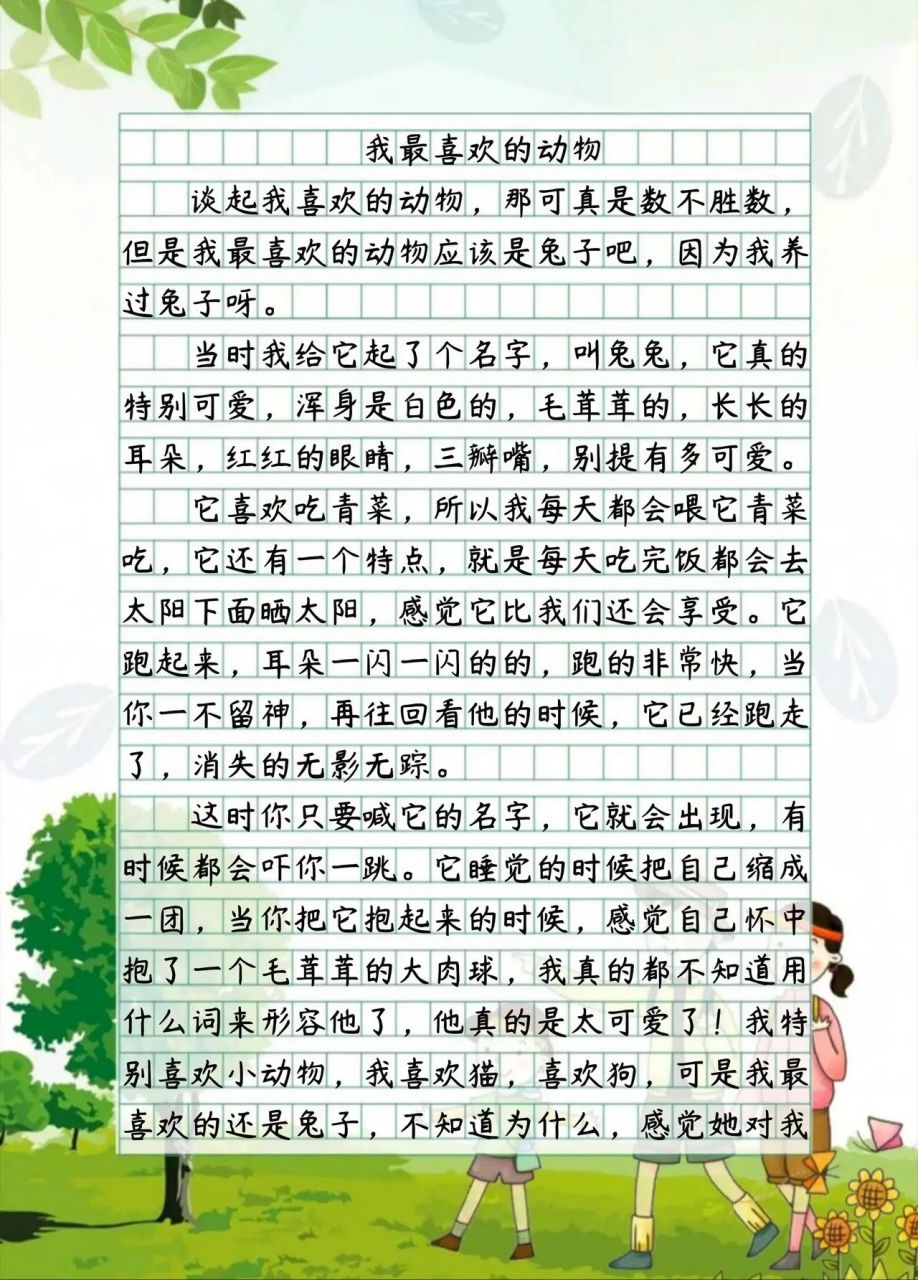 我最喜欢的动物
谈起我喜欢的动物，那可真是数不胜数，
但是我最喜欢的动物应该是兔子吧，因为我养
过兔子呀。
当时我给它起了个名字，叫兔兔，它真的
特别可爱，浑身是白色的，毛茸茸的，长长的
耳朵，红红的眼睛，三瓣嘴，别提有多可爱。
它喜欢吃青菜，所以我每天都会喂它青菜
吃，它还有一个特点，就是每天吃完饭都会去
太阳下面晒太阳，感觉它比我们还会享受。它
跑起来，耳朵一闪一闪的的，跑的非常快，当
你一不留神，再往回看他的时候，它已经跑走
了，消失的无影无踪。
这时你只要喊它的名字，它就会出现，有
时候都会吓你一跳。它睡觉的时候把自己缩成
一团，当你把它抱起来的时候，感觉自己怀中
抱了一个毛茸茸的大肉球，我真的都不知道用
什么词来形容他了，他真的是太可爱了！我特
别喜欢小动物，我喜欢猫，喜欢狗，可是我最
喜欢的还是兔子，不知道为什么，感觉她对我